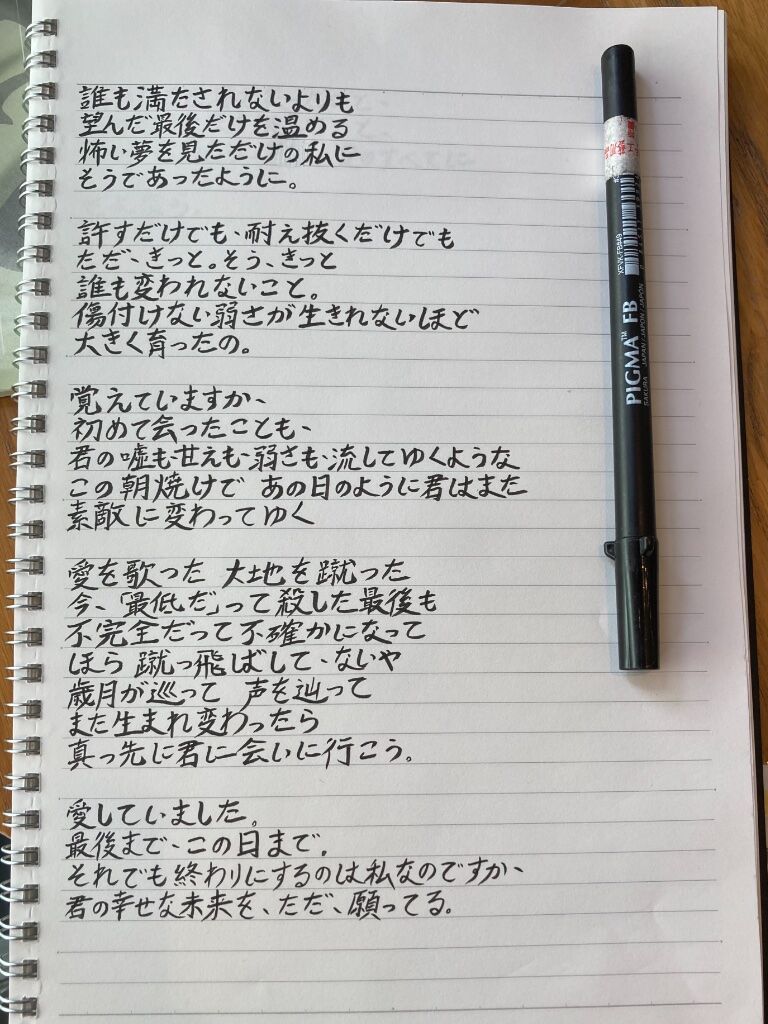 誰も満たされないよりも
望んだ最後だけを温める
怖い夢を見ただけの私に
そうであったように。
許すだけでも、耐え抜くだけでも
ただ、きっと。そう、きっと
誰も変われないこと。
傷付けない弱さが生きれないほど
大きく育ったの。
覚えていますか、
初めて会ったことも、
君の嘘も甘えも、弱さも、流してゆくような
この朝焼けで あの日のように君はまた
素敵に変わってゆく
愛を歌った 大地を蹴った
今、「最低だ」って殺した最後も
不完全だって不確かになって
ほら 蹴っ飛ばして、ないや
歳月が巡って 声を辿って
また生まれ変わったら
真っ先に君に会いに行こう。
愛していました。
最後まで、この日まで。
それでも終わりにするのは私なのですか、
君の幸せな未来を、ただ、願ってる。
PIGMA™ FB
SAKURA JAPAN/JAPON/JAPÓN
XFVK-FB#49